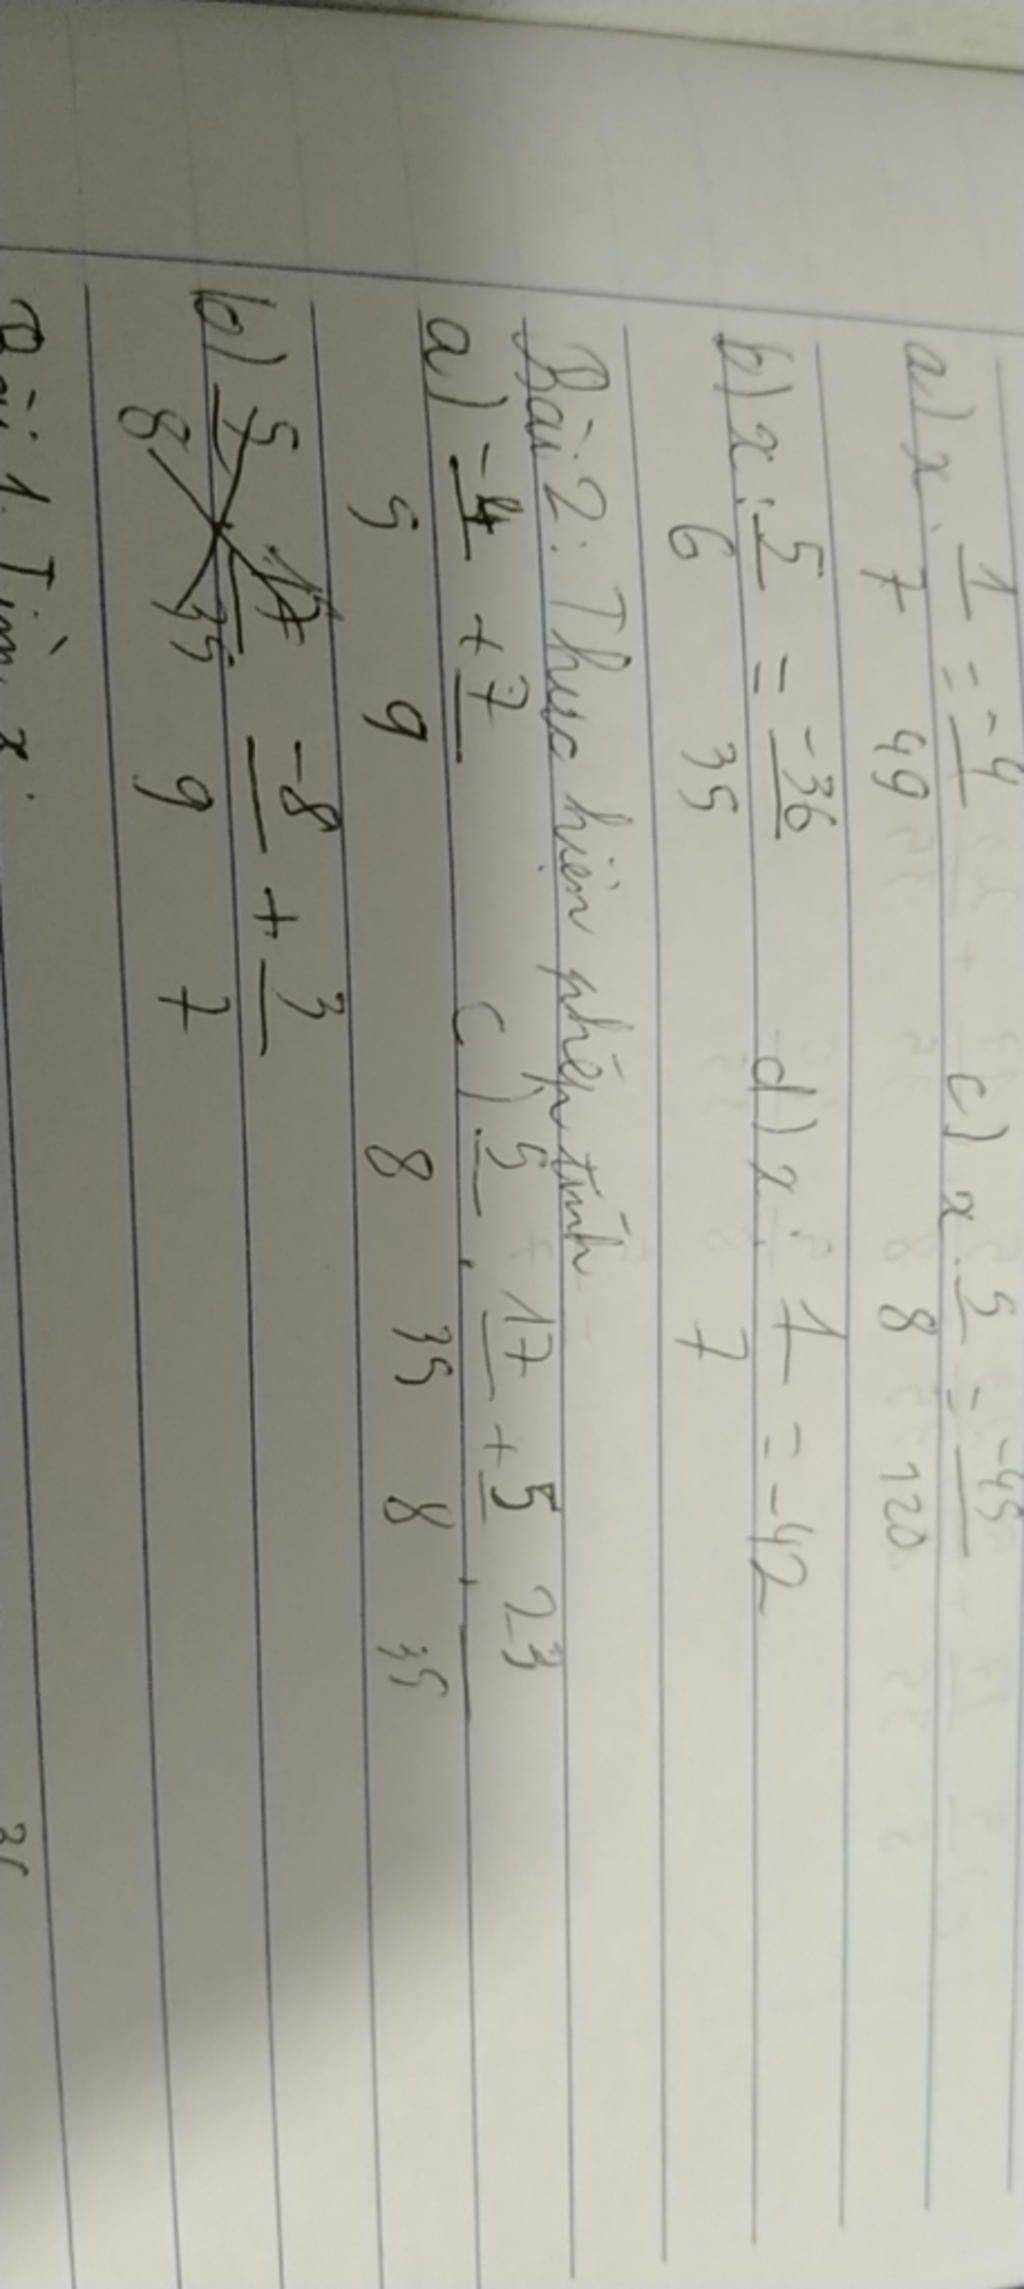 a) x. 1/7 = -4/49 c) x. 5/8 = -45/120
b) x: 5/6 = -36/35 d) x: 1/7 = -42
Bài 2: Thực hiện phép tính
a) -4/5 + 7/9 c) 5/8 . 17/35 + 5/8 . 23/35
b) -8/9 + 3/7
Bài 1. Tìm x.